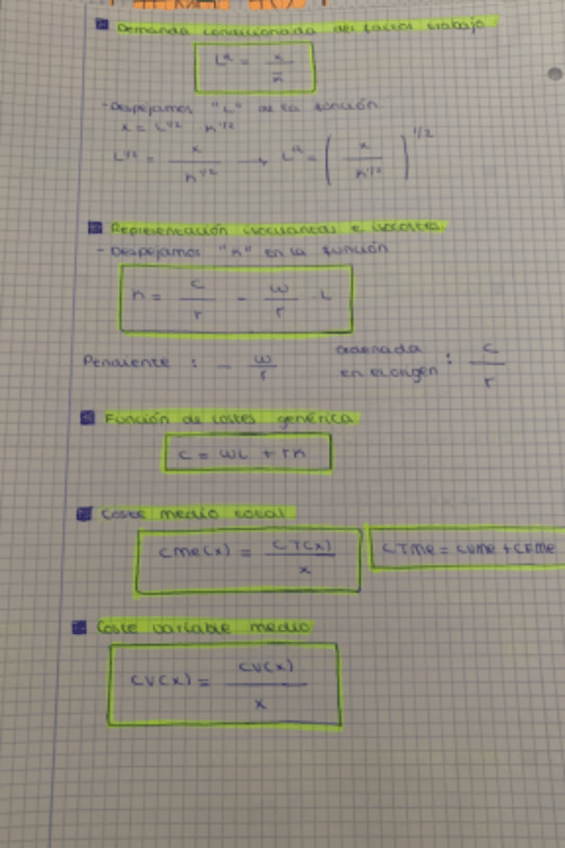 Demanda condicionada del factor trabajo
Lᵈ = x / n̄
- Despejamos "L" de la función
x = L^1/2 · K^1/2
L^1/2 = x / K^1/2 → Lᵈ = ( x / K^1/2 )^1/2
Representación isocuantas e isocostes
- Despejamos "K" en la función
K = C / r - w / r · L
Pendiente : - w / r ordenada en el origen : C / r
Función de costes genérica
C = WL + rK
Coste medio total
Cme(x) = CT(x) / x CTme = CVme + CFme
Coste variable medio
CV(x) = CV(x) / x